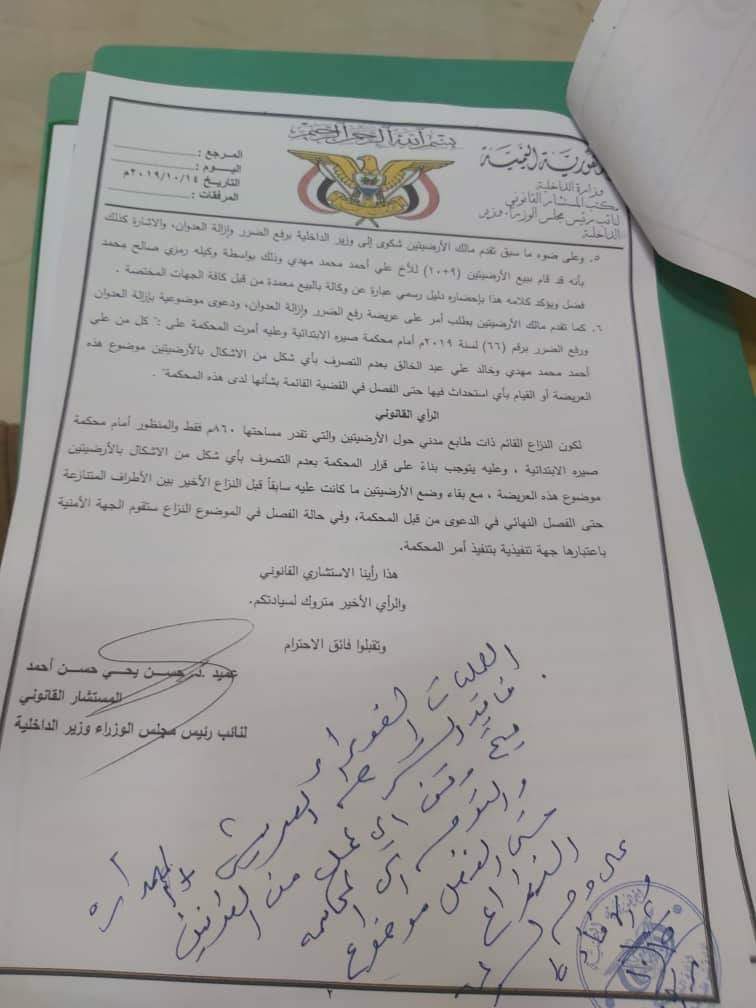 بسم الله الرحمن الرحيم
الجمهورية اليمنية
وزارة الداخلية
مكتب المستشار القانوني
لنائب رئيس مجلس الوزراء وزير
الداخلية
المرجع :
اليوم :
التاريخ ٢٠١٩/١٠/١٤م
المرفقات :
٥. وعلى ضوء ما سبق تقدم مالك الأرضيتين شكوى إلى وزير الداخلية برفع الضرر وازالة العدوان، والاشارة كذلك
بأنه قد قام ببيع الأرضيتين (٩+١٠) للأخ علي أحمد محمد مهدي وذلك بواسطة وكيله رمزي صالح محمد
فضل ويؤكد كلامه هذا بإحضاره دليل رسمي عبارة عن وكالة بالبيع معمدة من قبل كافة الجهات المختصة .
٦. كما تقدم مالك الأرضيتين بطلب أمر على عريضة رفع الضرر وازالة العدوان، ودعوى موضوعية بإزالة العدوان
ورفع الضرر برقم (٦٦) لسنة ٢٠١٩م أمام محكمة صيره الابتدائية وعليه أمرت المحكمة على :" كل من علي
أحمد محمد مهدي وخالد علي عبد الخالق بعدم التصرف بأي شكل من الاشكال بالأرضيتين موضوع هذه
العريضة أو القيام بأي استحداث فيها حتى الفصل في القضية القائمة بشأنها لدى هذه المحكمة" .
الرأي القانوني
لكون النزاع القائم ذات طابع مدني حول الأرضيتين والتي تقدر مساحتها ٨٦٠م فقط والمنظور أمام محكمة
صيره الابتدائية ، وعليه يتوجب بناءً على قرار المحكمة بعدم التصرف بأي شكل من الاشكال بالأرضيتين
موضوع هذه العريضة ، مع بقاء وضع الأرضيتين ما كانت عليه سابقاً قبل النزاع الأخير بين الأطراف المتنازعة
حتى الفصل النهائي في الدعوى من قبل المحكمة، وفي حالة الفصل في الموضوع النزاع ستقوم الجهة الأمنية
باعتبارها جهة تنفيذية بتنفيذ أمر المحكمة.
هذا رأينا الاستشاري القانوني
والرأي الأخير متروك لسيادتكم.
وتقبلوا فائق الاحترام
عميد .د. حسن يحي حسن أحمد
المستشار القانوني
لنائب رئيس مجلس الوزراء وزير الداخلية
من الطرفين
حتى الفصل موضوع
النزاع
٢